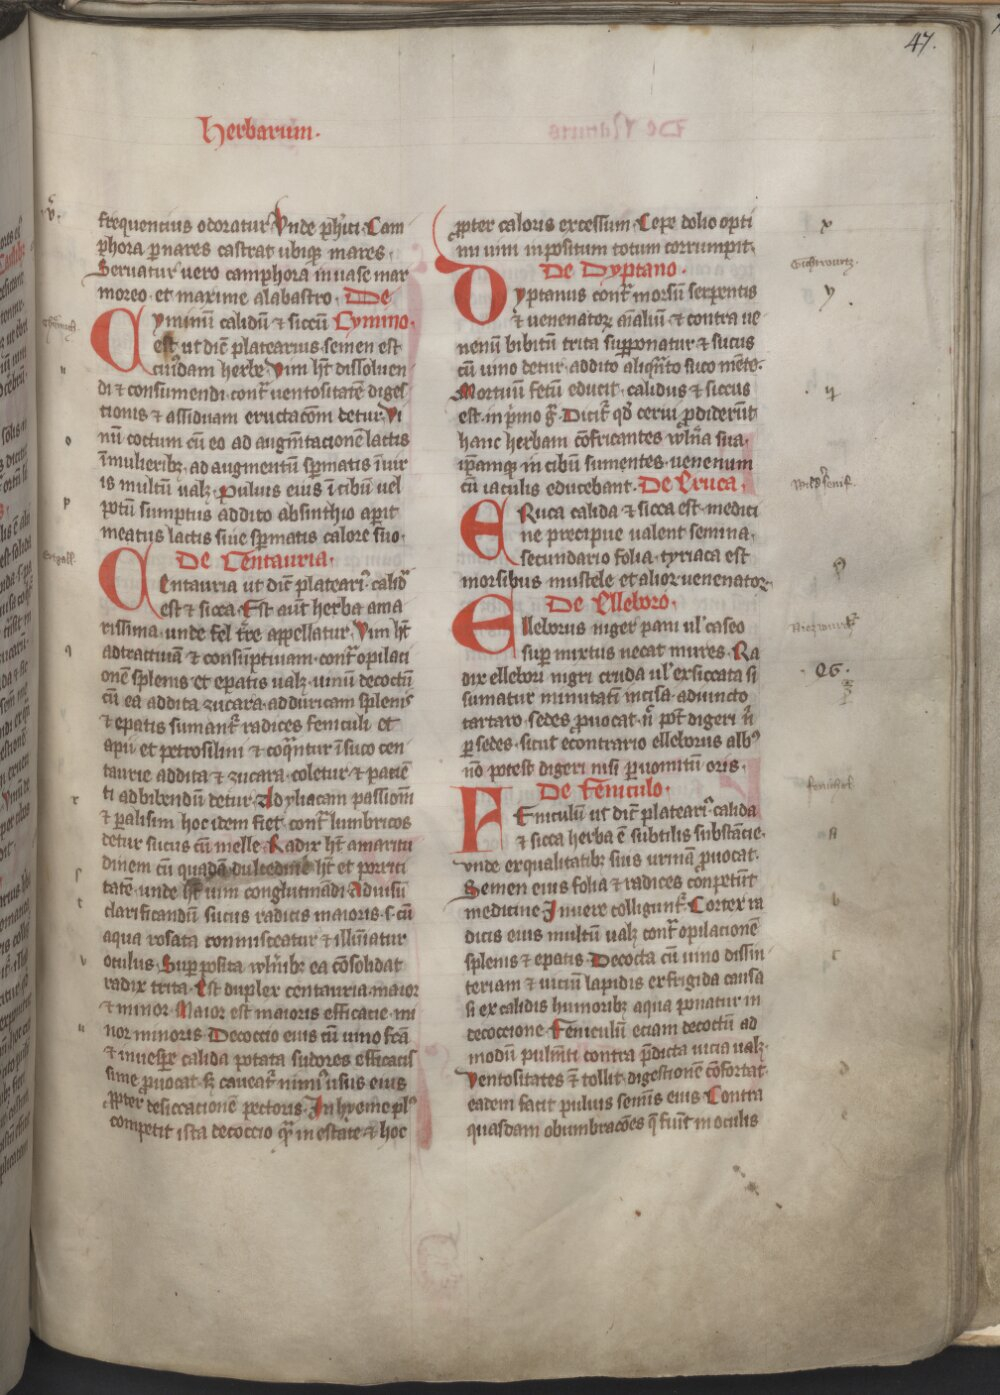 47.
Herbarum.
frequentius odoratur Vnde ph̓ici Cam
phora p̲ nares castrat ubiq̲ mares.
Seruatur uero camphora in uase mar
moreo · et maxime alabastro · De
Cyminū calidū ⁊ siccū Cymino.
est ut dic̄ platearius · semen est
cuiꝰdam herbe · vim hꝫ dissoluen
di ⁊ consumendi · contͣ uentositatē diges
tionis ⁊ assiduam eructacōm detur · Vi
nū coctum cū eo ad augm̄tacionē lactis
ī mulieribꝫ · ad augmentū spermatis ī uir
is multū ualꝫ · Puluis eius ī cibū uel
potū sumptus addito absinthio aperit
meatus lactis siue spermatis calore suo ·
De Centauria ·
Centauria ut dic̄ plateariꝰ calidͣ
est ⁊ sicca · Est aūt herba ama
rissima · unde fel tr̄re appellatur · Vim hꝫ
adtractiuā ⁊ consūptiuam · contͣ opilaci
onē splenis et epatis ualꝫ · uinū decoctū
cū ea addita zucara · ad duriciam splenis
⁊ epatis sumant̄ radices feniculi et
apii et petrosilini ⁊ coq̄ntur ī suco cen
taurie addita ⁊ zucara · coletur · ⁊ paciē
ti ad bibendū detur · Ad yliacam passiōm
⁊ palisim hoc idem fiet · contͣ lumbricos
detur sucus cū melle · Radix hꝫ amaritu
dinem cū quadā dulcedine hꝫ et ponti
tatē · unde hꝫ uim conglutinādi · Ad uisū
clarificandū sucus radicis maioris · s · cū
aqua rosata conmisceatur ⁊ illiniatur
oculus · Supposita uuln̄ibꝫ ea cōsolidat
radix trita · Est duplex centauria · maior
⁊ minor · Maior est maioris efficacie · mi
nor minoris · Decoccio eius cū uino fc̄a
⁊ in uesp̲e calida potata sudores efficacis
sime p̲uocat · sꝫ caueat̄ nimiꝰ usus eius
p̲pter desiccacionē pectoris · In hyeme plꝰ
competit ista decoccio qͣ in estate · ⁊ hoc
p̲pter caloris excessum · Cepe dolio opti
mi uini inpositum totum corrumpit ·
De Dyptano ·
Dyptanus contͣ morsū serpentis
⁊ uenenatoꝝ aīaliū ⁊ contra ue
nenū bibitū trita supponatur ⁊ sucus
cū uino detur · addito aliqn̄to suco mēte ·
Mortuū fetū educit · calidus ⁊ siccus
est · in p̓mo gͣ · Dicit̄ qd̄ cerui p̲diderūt
hanc herbam cōfricantes uuln̄a sua ·
ip̄amq̲ in cibū sumentes · uenenum
cū iaculis educebant · De Eruca ·
ERuca calida ⁊ sicca est · medici
ne precipue ualent semina ·
secundario folia · tyriaca est
morsibus mustele et alioꝝ uenenatoꝝ
De Elleboro ·
Elleborus niger pani ul̓ caseo
sup̲ mixtus necat mures · Ra
dix ellebori nigri cruda ul̓ exsiccata si
sumatur minutatī incisa · adiuncto
tartaro · sedes p̲uocat · n̄ pōt digeri n̄
p̲ sedes · sicut econtrario elleborus albꝰ
nō potest digeri nisi p̲ uomitū oris ·
De feniculo ·
FEniculū ut dic̄ plateariꝰ calida
⁊ sicca herba ē subtilis substācie ·
vnde ex qualitatibꝫ suis urinā p̲uocat ·
Semen eius folia ⁊ radices conpetūt
medicine · In uere colligunt̄ · Cortex ra
dicis eius multū ualꝫ contͣ opilacionē
splenis ⁊ epatis · Decocta cū uino dissin
teriam ⁊ uiciū lapidis ex frigida causa
si ex calidis humoribꝫ aqua p̲inatur in
decoccione · Feniculū eciam decoctū ad
modū pulmēti contra p̄dicta uicia ualꝫ ·
Ventositates ē tollit · digestionē cōfortat ·
eadem facit puluis semīs eius · Contra
quasdam obumbracōes q̄ fiūt in oculis
u
o
p
q
r
s
t
v
u
x
y
Q6 ·
a
b
c
d
e